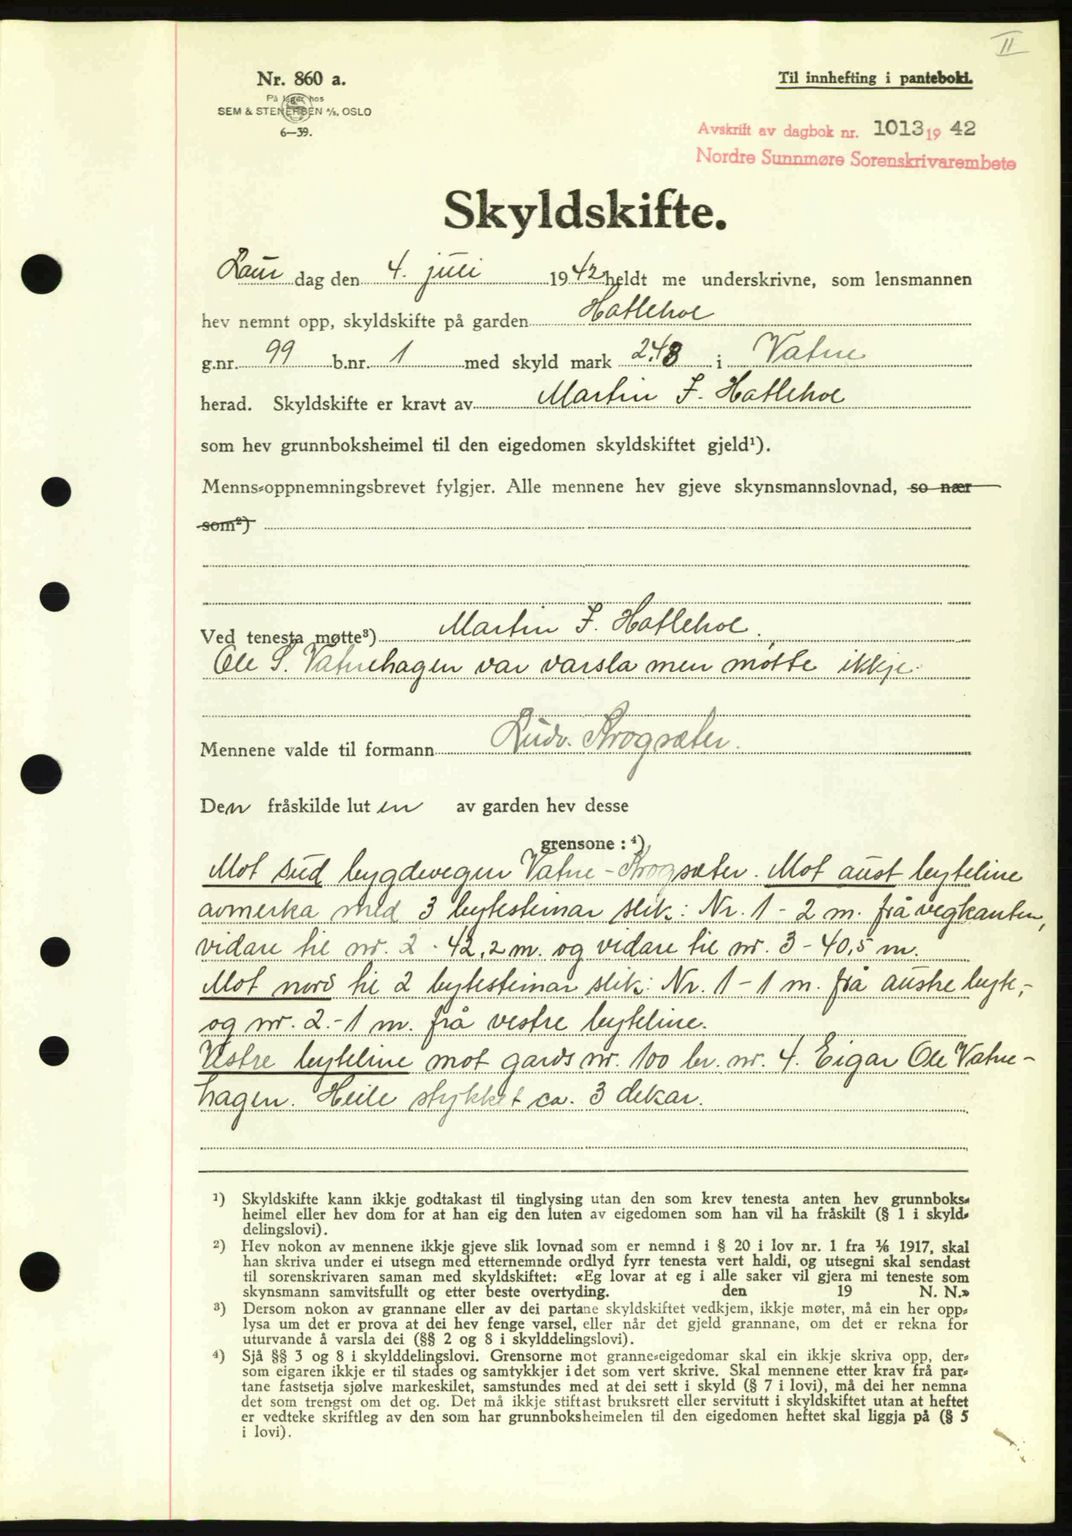 II
Nr. 860 a.
På lager hos
SEM & STENERSEN A/S, OSLO
6—39.
Til innhefting i pantebok.
Avskrift av dagbok nr. 1013 19 42
Nordre Sunnmøre Sorenskrivarembete
Skyldskifte.
Laur dag den 4. juli 1942 heldt me underskrivne, som lensmannen
hev nemnt opp, skyldskifte på garden Hatlehoe
g.nr. 99 b.nr. 1 med skyld mark 2,48 i Vatne
herad. Skyldskifte er kravt av Martin F. Hatlehoe
som hev grunnboksheimel til den eigedomen skyldskiftet gjeld¹).
Menns-oppnemningsbrevet fylgjer. Alle mennene hev gjeve skynsmannslovnad, so nær
som²)
Ved tenesta møtte³) Martin F. Hatlehoe.
Ole S. Vatnehagen var varsla men møtte ikkje.
Mennene valde til formann Ludv. Krogsæter.
Den fråskilde luten av garden hev desse
grensone: ⁴)
Mot sud bygdevegen Vatne - Krogsæter. Mot aust byteline
avmerka med 3 bytesteinar slik: Nr. 1 - 2 m. frå vegkanten,
vidare til nr. 2 - 42,2 m. og vidare til nr. 3 - 40,5 m.
Mot nord til 2 bytesteinar slik: Nr. 1 - 1 m. frå austre byte,-
og nr. 2.- 1 m. frå vestre byteline.
Vestre byteline mot gards nr. 100 br. nr. 4. Eigar Ole Vatne-
hagen. Heile stykket ca. 3 dekar.
¹) Skyldskifte kann ikkje godtakast til tinglysing utan den som krev tenesta anten hev grunnboks-
heimel eller hev dom for at han eig den luten av eigedomen som han vil ha fråskilt (§ 1 i skyld-
delingslovi).
²) Hev nokon av mennene ikkje gjeve slik lovnad som er nemnd i § 20 i lov nr. 1 fra ⅙ 1917, skal
han skriva under ei utsegn med etternemnde ordlyd fyrr tenesta vert haldi, og utsegni skal sendast
til sorenskrivaren saman med skyldskiftet: «Eg lovar at eg i alle saker vil gjera mi teneste som
skynsmann samvitsfullt og etter beste overtyding. den 19 N. N.»
³) Dersom nokon av grannane eller av dei partane skyldskiftet vedkjem, ikkje møter, må ein her opp-
lysa um det er prova at dei hev fenge varsel, eller når det gjeld grannane, om det er rekna for
uturvande å varsla dei (§§ 2 og 8 i skylddelingslovi).
⁴) Sjå §§ 3 og 8 i skylddelingslovi. Grensorne mot granne-eigedomar skal ein ikkje skriva opp, der-
som eigaren ikkje er til stades og samtykkjer i det som vert skrive. Skal mennene etter krav frå par-
tane fastsetja sjølve markeskilet, samstundes med at dei sett i skyld (§ 7 i lovi), må dei her nemna
det som trengst om det og. Det må ikkje stiftast bruksrett eller servitutt i skyldskiftet utan at heftet
er vedteke skriftleg av den som har grunnboksheimelen til den eigedomen heftet skal liggja på (§ 5
i lovi).